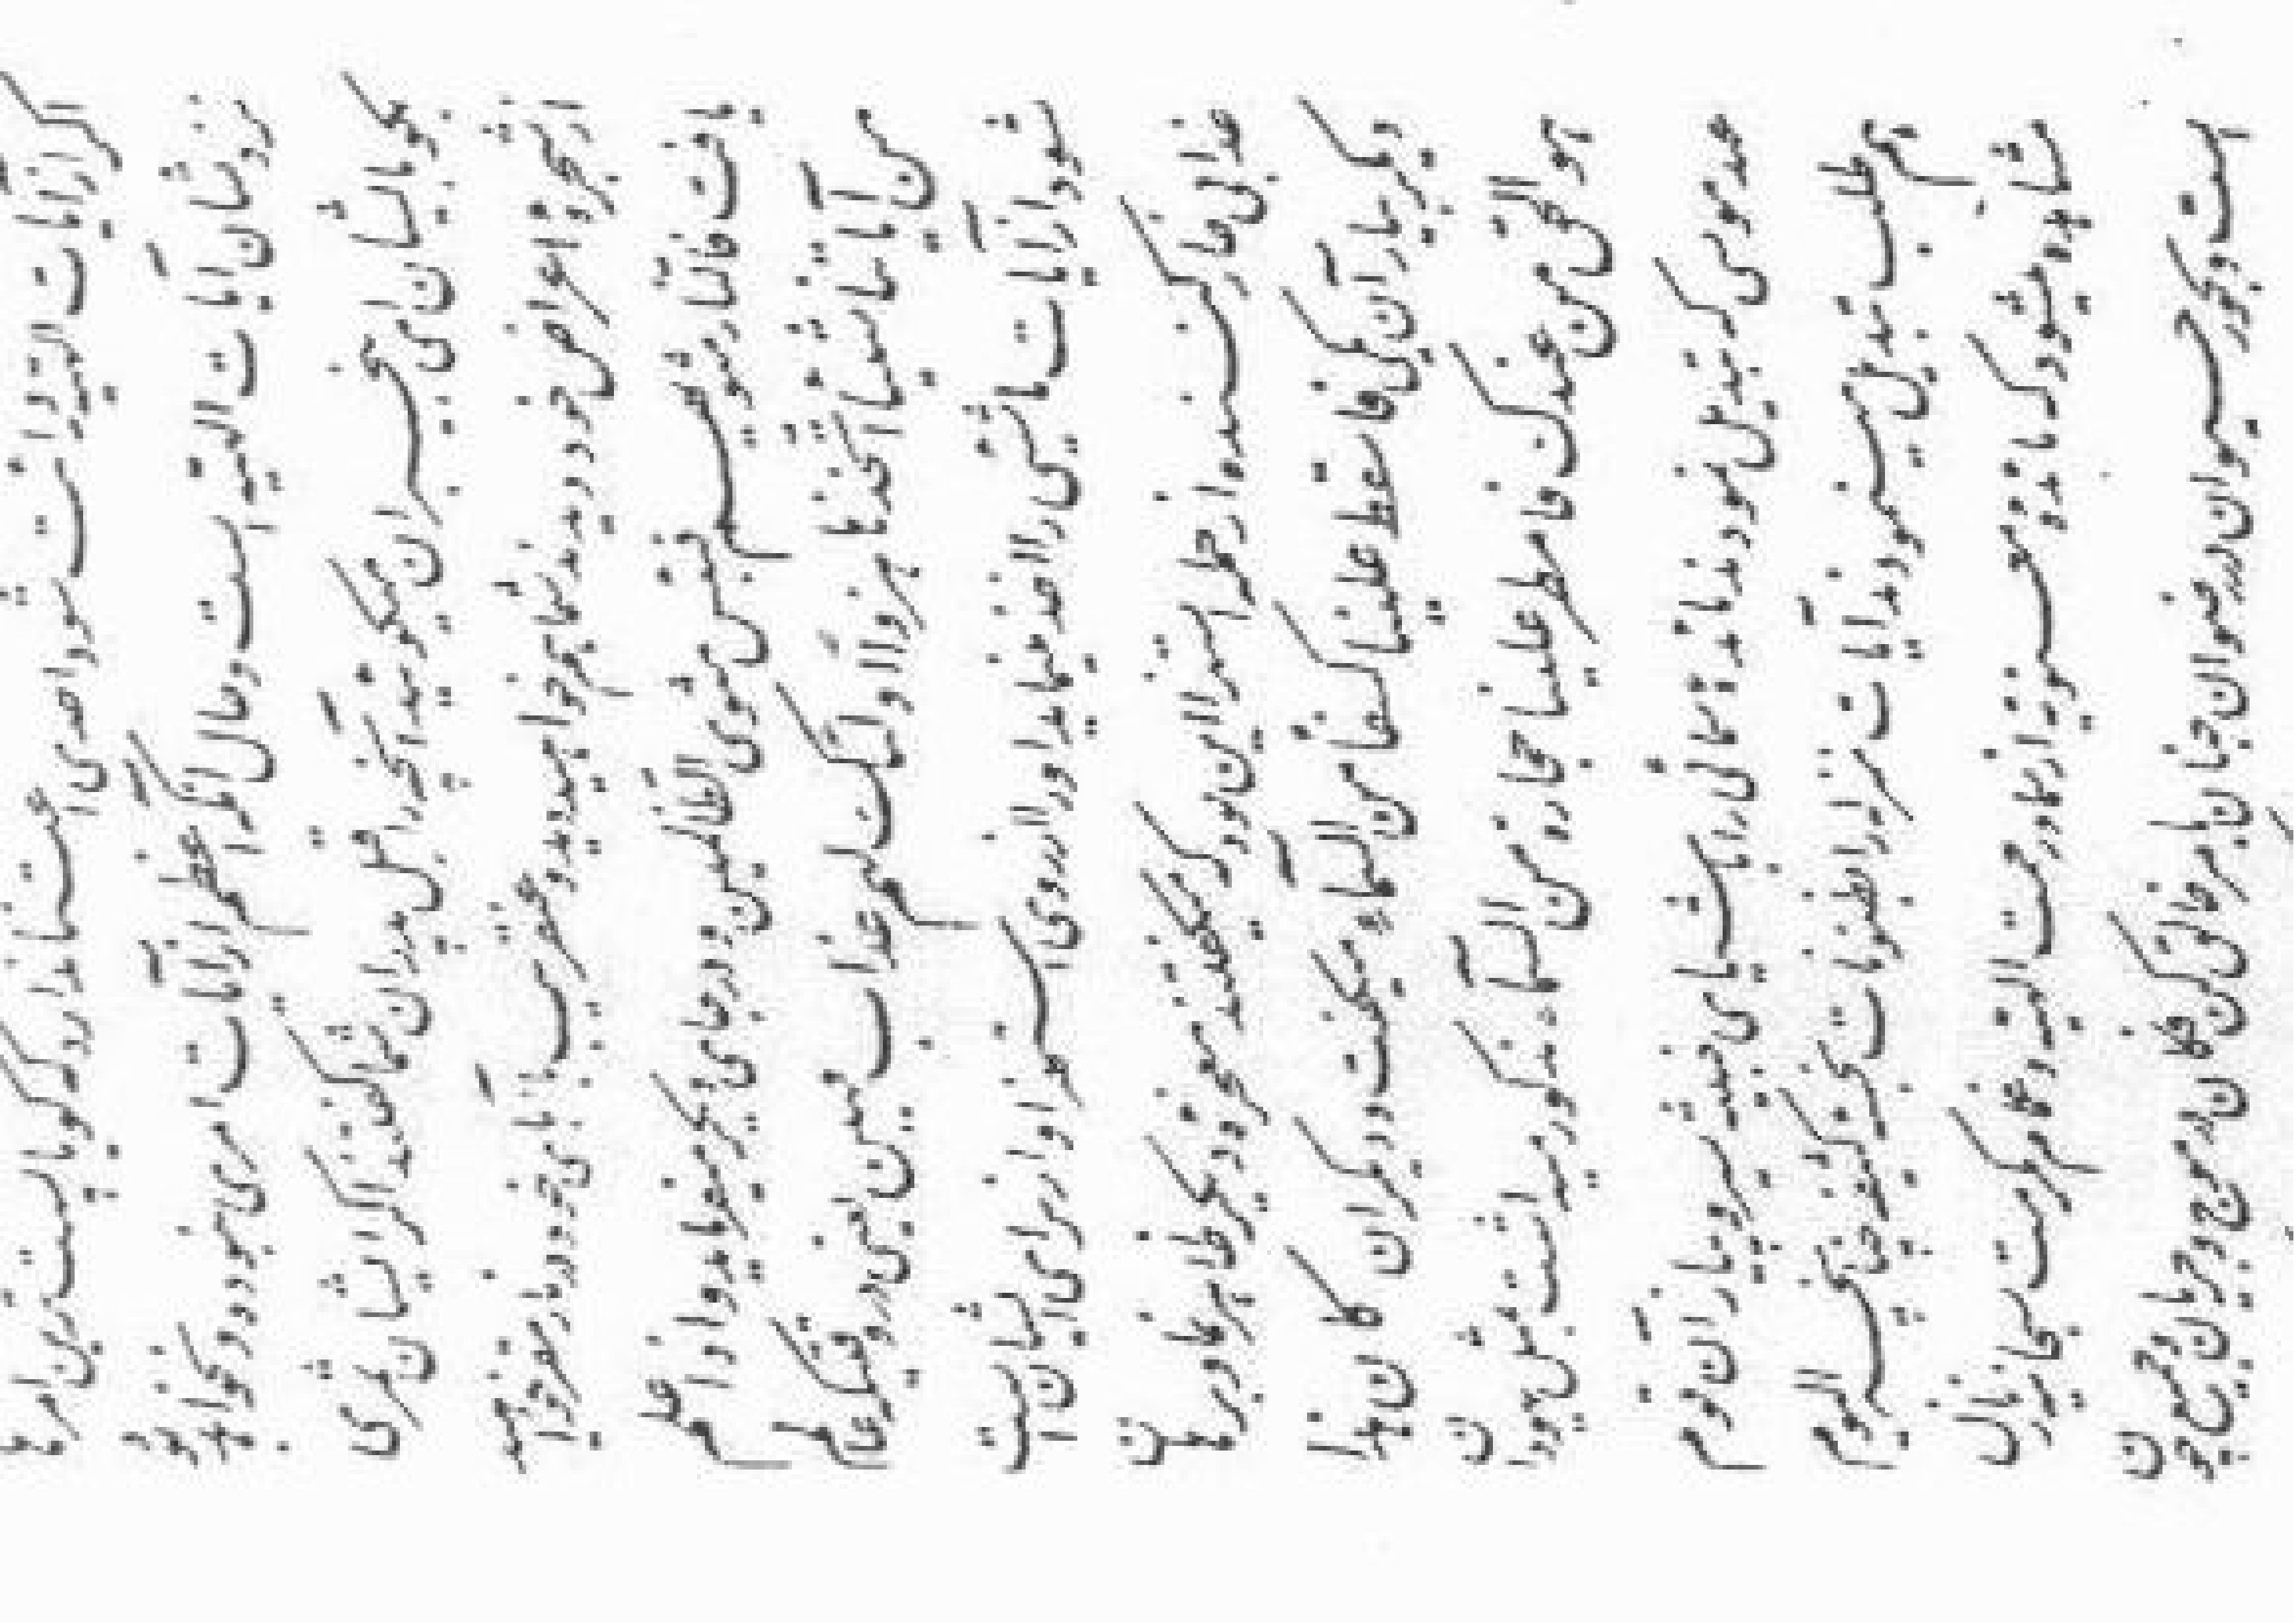 اکر از آیات الهیه قرائت شود احدی اعتنا ندارد که کویا پست ترین امرها
نزدشان آیات الهیه است و حال انکه اعظم از آیات امری نبوده و نخواهد بود
بکو بایشان ای بیخبران میکوئید آنچه را قبل پدران شما کفتند اکر ایشان ثمری
از شجره اعراض خود دیدند شما هم خواهید دید و عنقریب با آبای خود در نار مقر خواهید
یافت فالنار مثویهم فبئس مثوی الظالمین و در جای دیکر میفرماید و اذا علم
من آیاتنا شیئا اتخذها هزوا اولئک لهم عذاب مهین یعنی در وقتیکه عالم
شود از آیات ما شیئی را اخذ مینماید او را از روی استهزا و از برای ایشان است
عذابی خار کننده از جمله استهزا این بود که میکفتند معجزه دیکر ظاهر کن و برهان
دیکر بیار آن یکی فاسقط علینا کسفا من السماء میکفت و دیکری ان کان هذا
هو الحق من عندک فامطر علینا حجارة من السماء مذکور میداشت مثل یهودان
عهد موسی که تبدیل نمودند مائده سمائی را باشیای خبیثه سیر و پیاز آن قوم
هم طلب تبدیل مینمودند آیات منزله را بظنونات نجسه کثیفه چنانچه الیوم
مشاهده میشود که مائده معنویه از سماء رحمت الهیه و غمام مکرمت سبحانیه نازل
است و بحور حیوان در رضوان جنان بامر خالق کن فکان در موج و جریان و جمیع چون